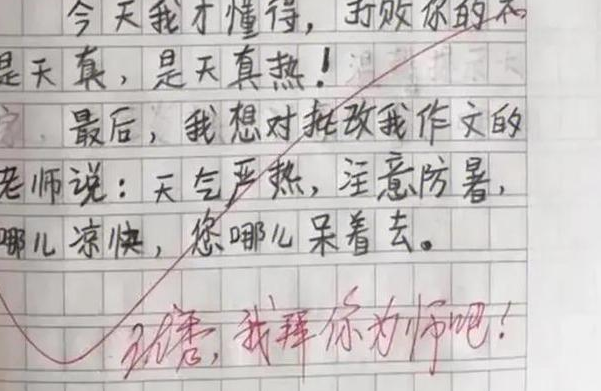 今天我才懂得，打败你的不
是天真，是天真热！
最后，我想对批改我作文的
老师说：天气严热，注意防暑，
哪儿凉快，您哪儿呆着去。
我拜你为师吧！